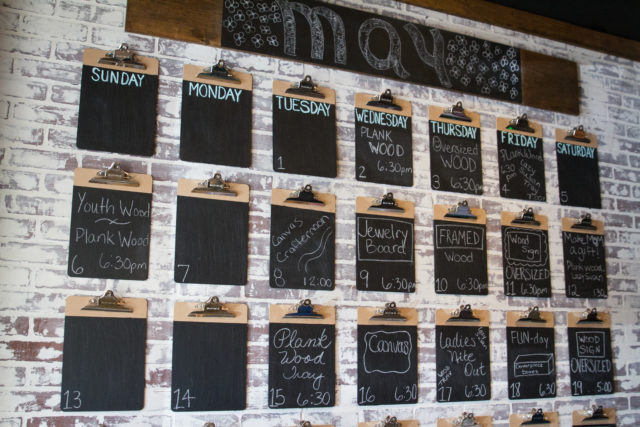 may
SUNDAY
MONDAY
TUESDAY
1
WEDNESDAY
PLANK
WOOD
2 6:30pm
THURSDAY
Oversized
WOOD
3 6:30pm
FRIDAY
Plank Wood
4
SATURDAY
5
6:30
Youth Wood
Plank Wood
6 6:30pm
7
Canvas
Crafternoon
8 12:00
Jewelry
Board
9 6:30
FRAMED
Wood
10 6:30
Wood
Sign
OVERSIZED
11 6:30
Make Mom
a gift!
Plank Wood
12
13
14
Plank
Wood
Tray
15 6:30
Canvas
16 6:30
Ladies
Nite
Out
17 6:30
FUN-day
Centerpiece
Boxes
18 6:30
WOOD
SIGN
OVERSIZED
19 5:00